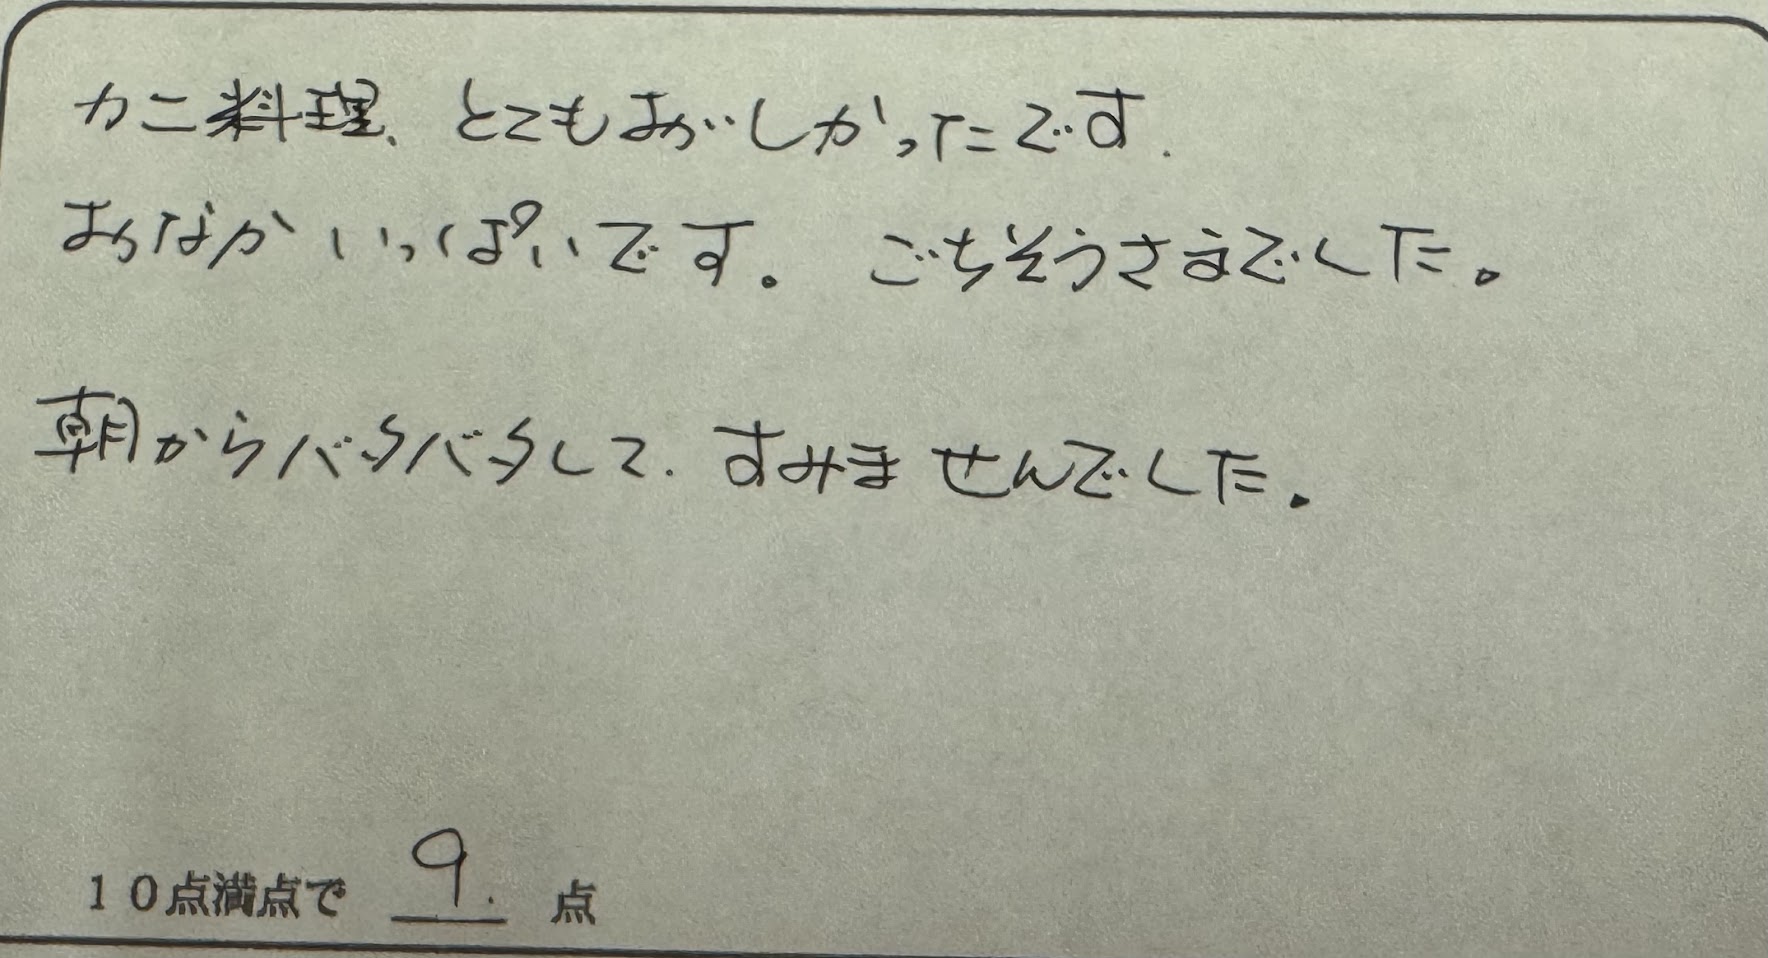 カニ料理、とてもおいしかったです.
おなかいっぱいです。 ごちそうさまでした。
朝からバタバタして、すみませんでした。
10点満点で 9. 点